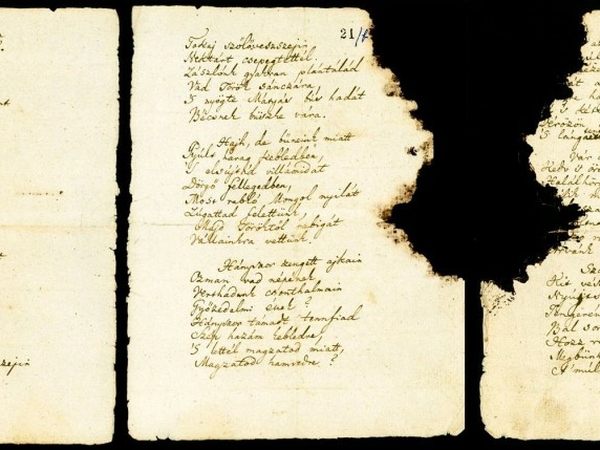 21
Tokaj szőlővesszején
Nektárt csepegtettél.
Zászlónk gyakran plántálád
Vad Török sánczára,
'S nyögte Mátyás bús hadát
Bécsnek büszke vára.
Hajh, de bűneink miatt
Gyúlt harag kebledben,
'S elsújtád villámidat
Dörgő fellegedben,
Most rabló Mongol nyilát
Zúgattad felettünk,
Majd Töröktől rabigát
Vállainkra vettünk.
Hányszor zengett ajkain
Ozman vad népének
Vert hadunk csonthalmain
Győzedelmi ének?
Hányszor támadt tennfiad
Szép hazám kebledre,
'S lettél magzatod miatt,
Magzatod hamvedre?
Vár
Kedv s ör
Halálhör
Sz
Hit vé
Nyújts
Tengeren
Bal sor
Hozz r
Megbün
A' múl